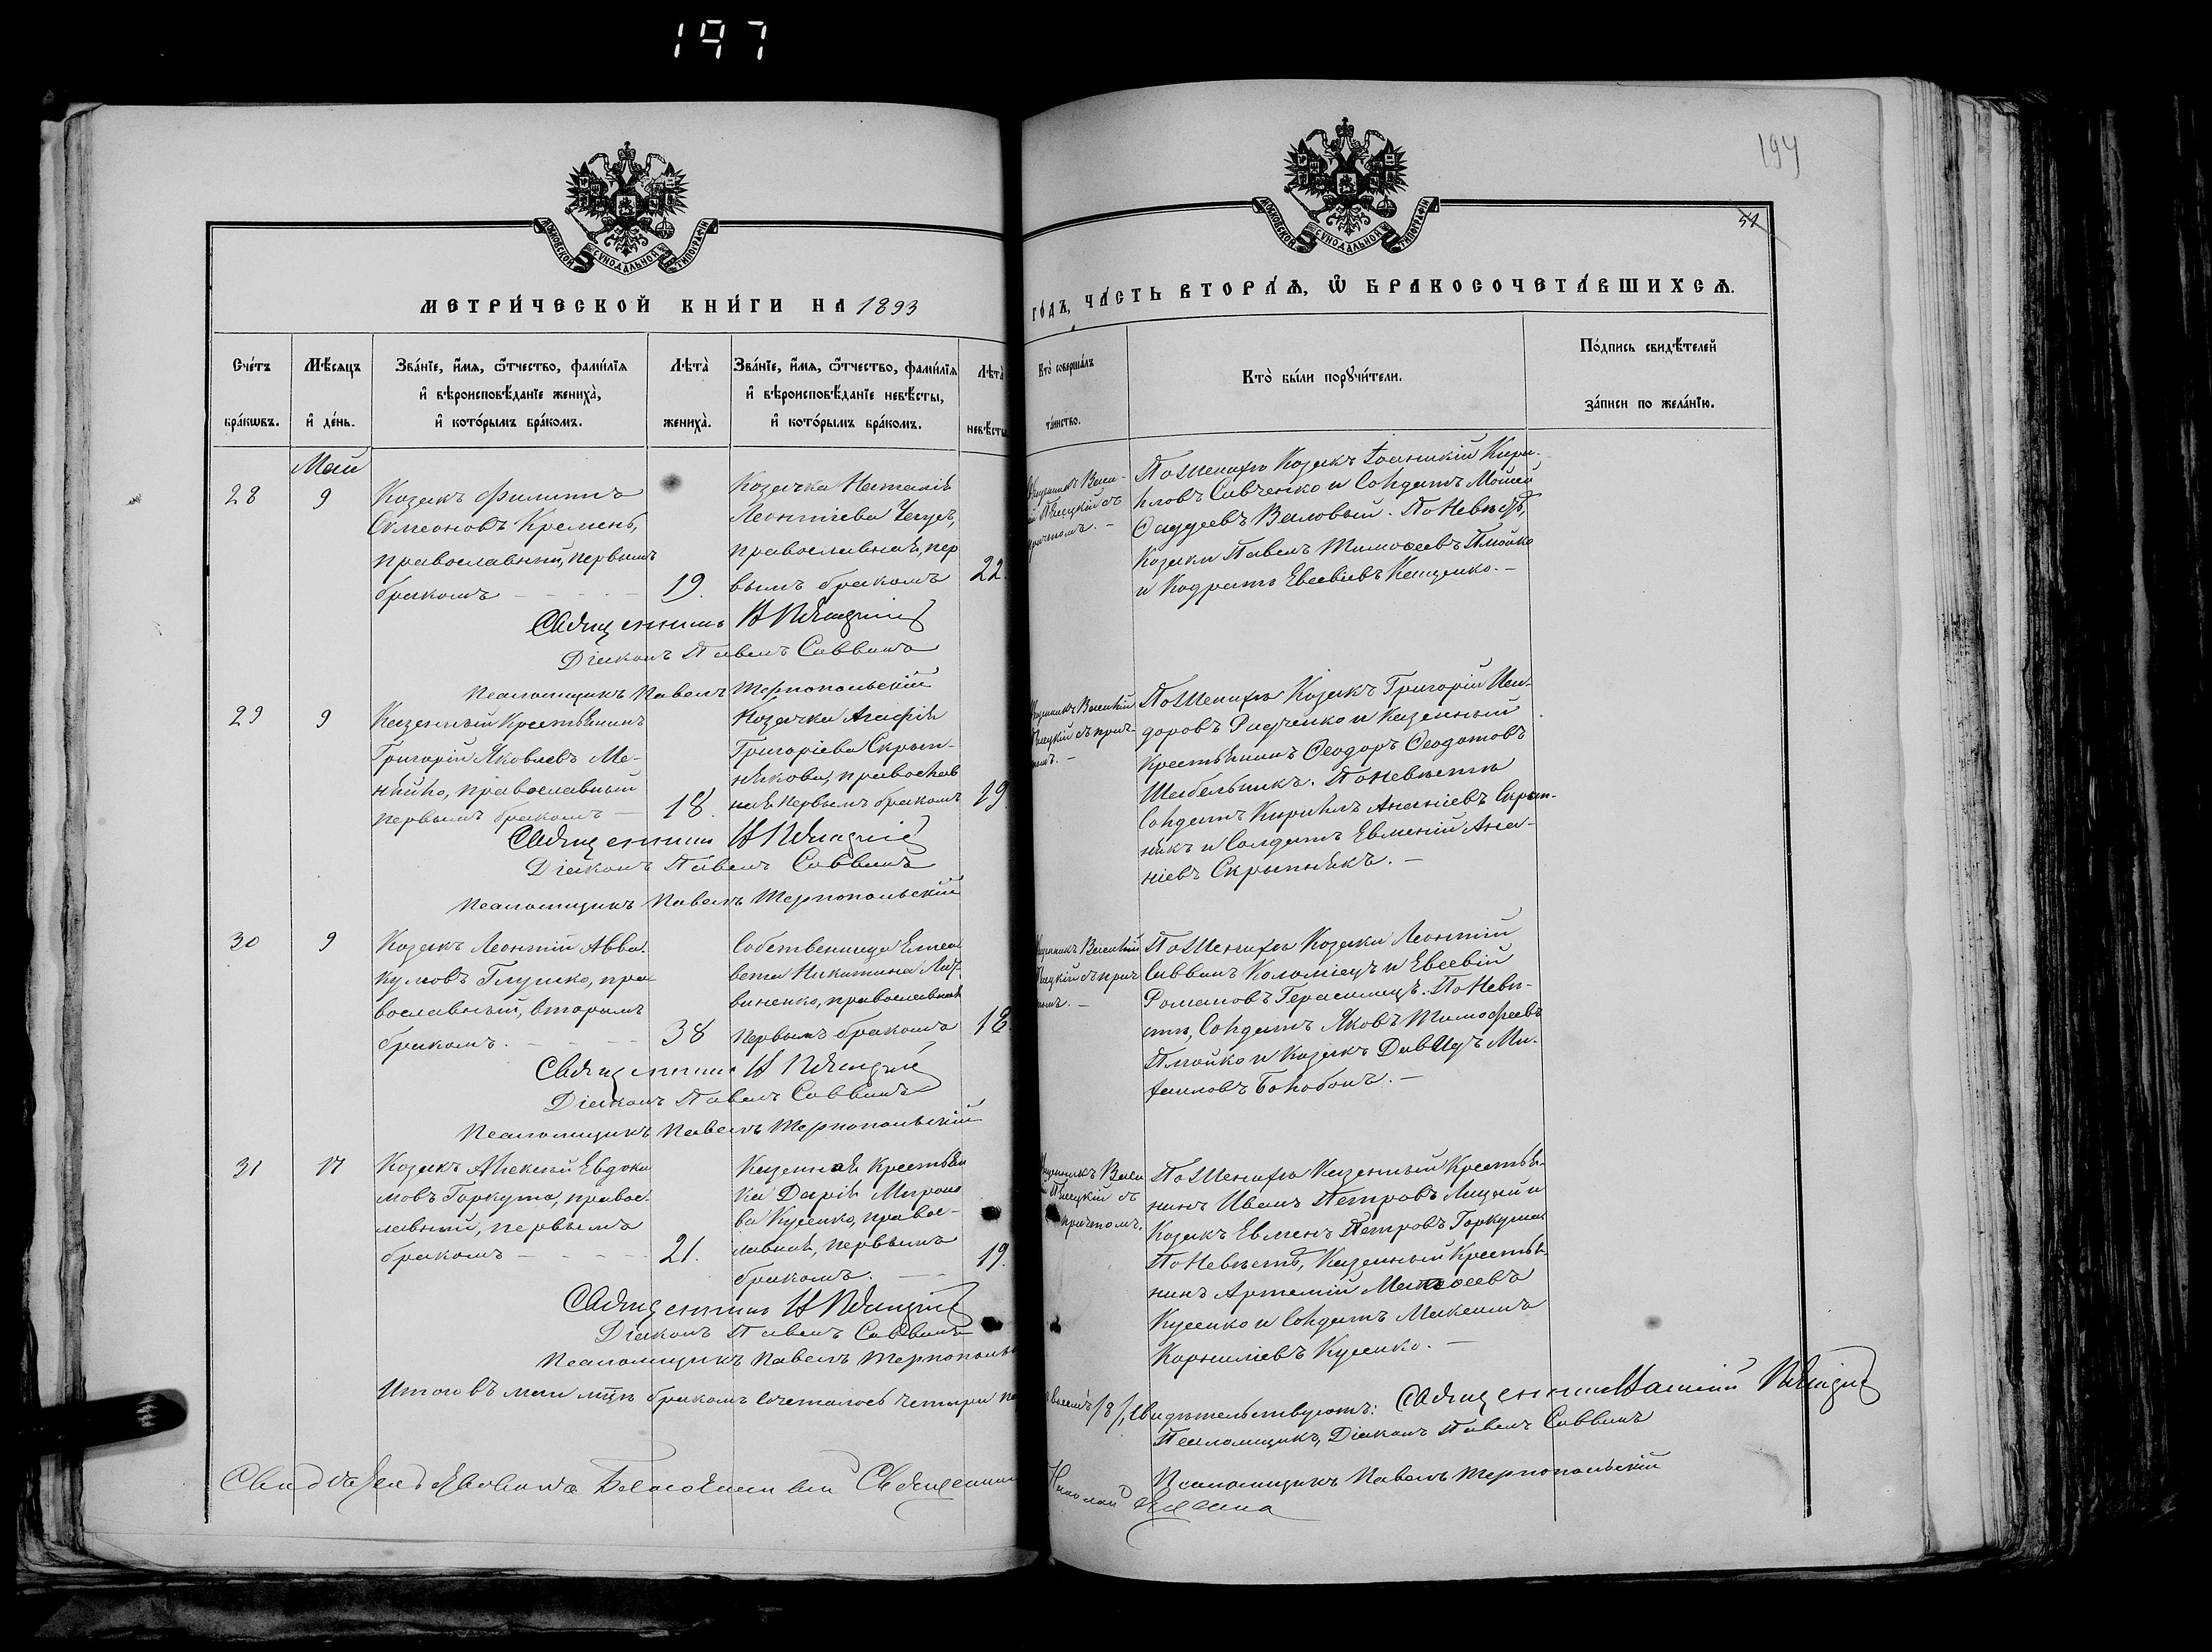 197
194
51
МОСКОВСКОЙ СѴНОДАЛЬНОЙ ТИПОГРАФІИ
МОСКОВСКОЙ СѴНОДАЛЬНОЙ ТИПОГРАФІИ
МЕТРИ́ЧЕСКОЙ КНИ́ГИ НА 1893
ГО́ДЪ, ЧА́СТЬ ВТОРА́Ѧ, Ѽ БРАКОСОЧЕТА́ВШИХСѦ.
Сче́тъ бра́кѡвъ.
Мѣ́сяцъ и҆ де́нь.
Зва́нїе, и҆́мѧ, ѻ҆́тчество, фами́лїѧ
и҆ вѣроисповѣ́данїе жениха̀,
и҆ кото́рымъ бра́комъ.
Лѣта̀ жениха̀.
Зва́нїе, и҆́мѧ, ѻ҆́тчество, фами́лїѧ
и҆ вѣроисповѣ́данїе невѣ́сты,
и҆ кото́рымъ бра́комъ.
Лѣта̀ невѣ́сты
Кто̀ соверша́лъ та́инство.
Кто̀ бы́ли порꙋчи́тели.
По́дпись свидѣ́телей
за́писи по жела́нїю.
Май
28
9
Козакъ Филиппъ
Симеоновъ Кремень,
православный, первымъ
бракомъ
19.
Козачка Наталія
Леонтіева
православная, пер
вымъ бракомъ
22.
По Женихѣ Козакъ Іоанникій Кири-
ловъ Савченко и Солдатъ Мойсей
Фаддеевъ Валовый. По Невѣстѣ,
Козаки Павелъ Тимоѳеевъ Плойко
и Кодратъ Евсевіевъ Кащенко.
Священникъ
Діаконъ Павелъ Саввинъ
Псаломщикъ Павелъ Тернопольскій
29
9
Казенный Крестьянинъ
Григорій Яковлевъ Ме-
православный
первымъ бракомъ
18.
Козачка Агафія
Григоріева Скрып-
никова, православ
ная первымъ бракомъ
19
По Женихѣ Козакъ Григорій Иси-
доровъ Радченко и казенный
Крестьянинъ Ѳеодоръ Ѳеодотовъ
Шабельникъ. По Невѣстѣ
Солдатъ Кирилъ Ананіевъ Скрып-
никъ и Солдатъ Евмений Ана-
ніевъ Скрыпникъ.
Священникъ
Діаконъ Павелъ Саввинъ
Псаломщикъ Павелъ Тернопольскій
30
9
Козакъ Леонтій Авва-
кумовъ Глушко, пра
вославный, вторымъ
бракомъ.
38
Собственница Елиса
вета Никитина Лит-
виненко, православная
первымъ бракомъ
18.
По Женихѣ Козаки Леонтій
Саввинъ Коломіецъ и Евсевій
Романовъ Герасимецъ. По Невѣ-
стѣ, Солдатъ Яковъ Тимофеевъ
Плойко и Козакъ Давидъ Ми-
хаиловъ Боловонъ.
Священникъ
Діаконъ Павелъ Саввинъ
Псаломщикъ Павелъ Тернопольскій
31
17
Козакъ Алексій Евдоки
мовъ Горкуша, правос-
лавный, первымъ
бракомъ
21.
Казенная Крестьян
ка Дарія Мирона
ва Кусенко, правос-
лавная, первымъ
бракомъ.
19.
причтомъ.
По Женихѣ Казенный Крестья-
нинъ Иванъ Петровъ Лицкій и
Козакъ Евменъ Петровъ Горкуша
По Невѣстѣ, Казенный Крестья-
нинъ Артемій Матѳеевъ
Кусенко и Солдатъ Максимъ
Корниліевъ Кусенко.
Священникъ
Діаконъ Павелъ Саввинъ
Псаломщикъ Павелъ Тернопольс
Итого въ маи м̃цѣ бракомъ сочеталось четыри
/8/, Свидѣтельствуютъ: Священникъ
Псаломщикъ, Діаконъ Павелъ Саввинъ
Псаломщикъ Павелъ Тернопольскій
Свидѣтельствовалъ Благочинный Священникъ Николай